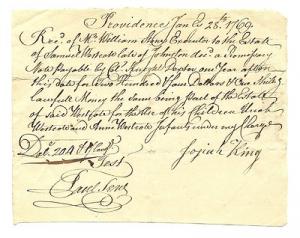 Providence Jan 28th 1769
Recd of Mr William Executor to the Estate
of Samuel Westcote Late of Johnston decd a Promissory
Note Payable by One Year after
this date for Two Hundred & four Dollars &
Lawfull Money the same being Part of the Estate
of said Westcote for the Use of his Children Uriah
Westcote and Anne Westcote Infants under my Charge
Dolrs 204
Test
Josiah King
Paul Tew